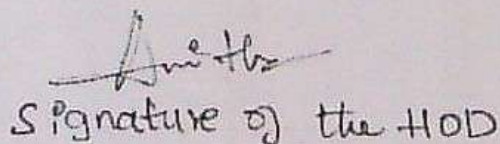 Anitha
Signature of the HOD